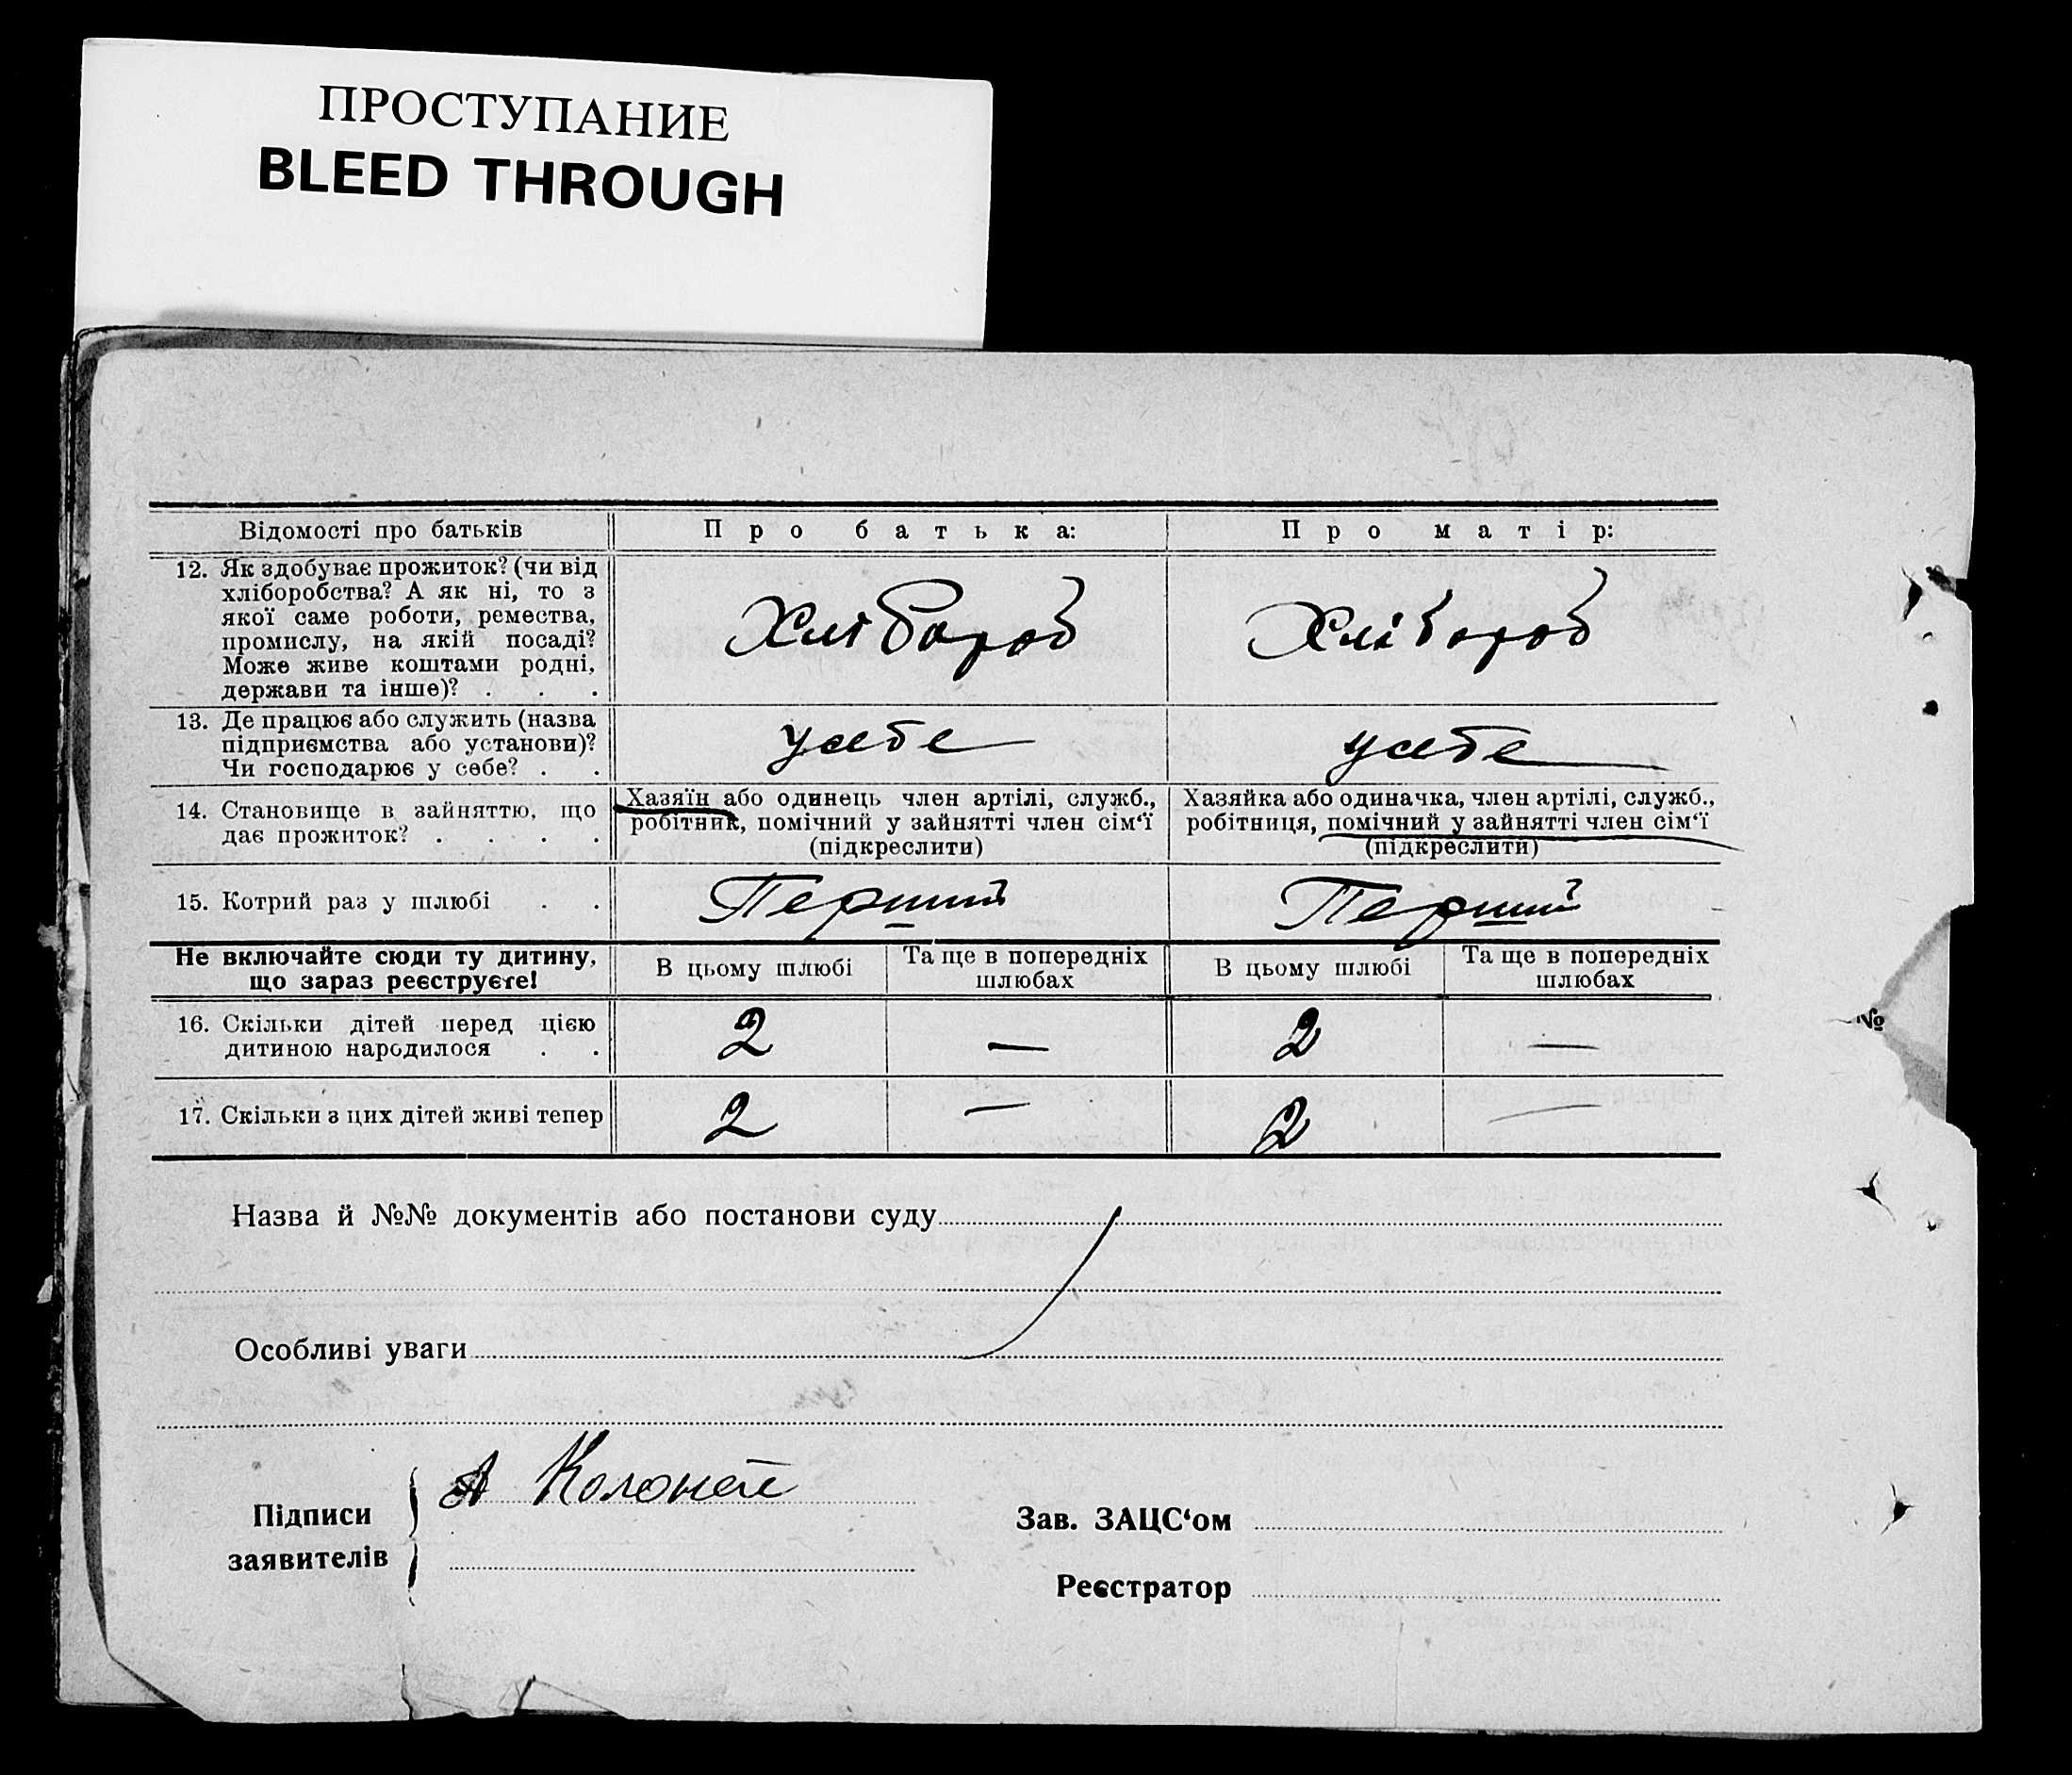 ПРОСТУПАНИЕ
BLEED THROUGH
Відомості про батьків
Про батька:
Про матір:
12. Як здобуває прожиток? (чи від
хліборобства? А як ні, то з
якої саме роботи, ремества,
промислу, на якій посаді?
Може живе коштами родні,
держави та інше)? . . .
Хлібороб
Хлібороб
13. Де працює або служить (назва
підприємства або установи)?
Чи господарює у себе? . .
у себе
у себе
14. Становище в зайняттю, що
дає прожиток? . . . .
Хазяїн або одинець член артілі, служб.,
робітник, помічний у зайнятті член сім‘ї
(підкреслити)
Хазяйка або одиначка, член артілі, служб.,
робітниця, помічний у зайнятті член сім‘ї
(підкреслити)
15. Котрий раз у шлюбі . .
Перший
Перший
Не включайте сюди ту дитину,
що зараз реєструєте!
В цьому шлюбі
Та ще в попередніх
шлюбах
В цьому шлюбі
Та ще в попередніх
шлюбах
16. Скільки дітей перед цією
дитиною народилося . .
2
—
2
—
17. Скільки з цих дітей живі тепер
2
—
2
—
№
Назва й №№ документів або постанови суду
Особливі уваги
Підписи
заявителів
А
Зав. ЗАЦС‘ом
Реєстратор